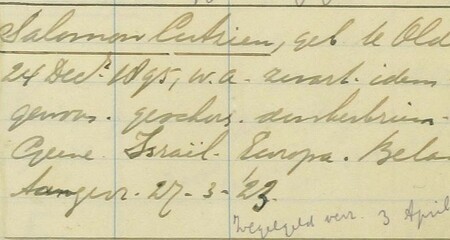 Salomon Cutrien, geb te Old
24 Dec. 1895, w.a. zwart. idem
gewoon. geschors. donkerbruin
Geene Israël. Europa. Bela
Aangevr. 27-3-'23
Zegelgeld verz. 3 April